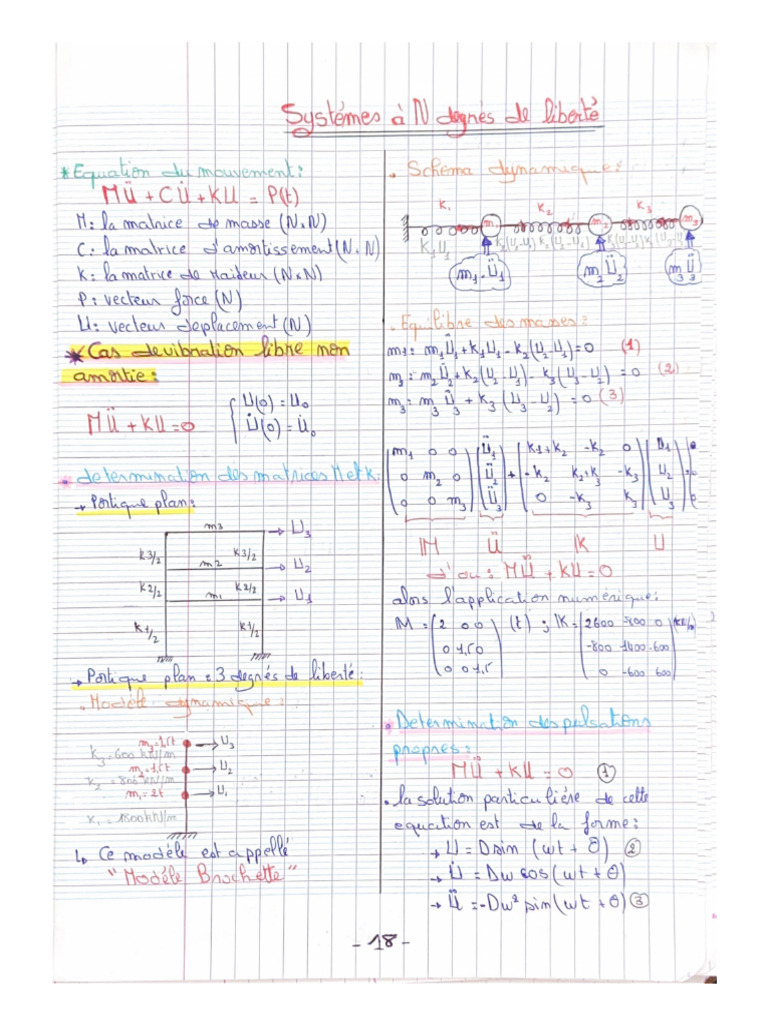 Systémes à N degrés de liberté
* Equation du mouvement:
MÜ + CU̇ + KU = P(t)
M: la matrice de masse (N×N)
C: la matrice d'amortissement (N×N)
K: la matrice de raideur (N×N)
P: vecteur force (N)
U: vecteur deplacement (N)
* Cas de vibration libre non
amortie:
MÜ + KU = 0 { U(0) = U₀
U̇(0) = U̇₀
. determination des matrices M et K:
→ Portique plan:
m3 → U₃
K3/2 K3/2
m2 → U₂
K2/2 K2/2
m1 → U₁
K1/2 K1/2
→ Portique plan : 3 degrés de liberté:
. Modéle dynamique:
m₃=1,5t → U₃
K₃=600 kN/m
m₂=1,5t → U₂
K₂=800 kN/m
m₁=2t → U₁
K₁=1800 kN/m
↳ Ce modéle est appellé
"Modéle Brochette"
. Schema dynamique:
K₁ K₂ K₃
m₁ m₂ m₃
K₁U₁ K₂(U₂-U₁) K₂(U₂-U₁)
m₁.Ü₁ m₂Ü₂ m₃Ü₃
. Equilibre des masses:
m₁: m₁Ü₁ + K₁U₁ - K₂(U₂-U₁) = 0 (1)
m₂: m₂Ü₂ + K₂(U₂-U₁) - K₃(U₃-U₂) = 0 (2)
m₃: m₃Ü₃ + K₃(U₃-U₂) = 0 (3)
(m₁ 0 0) (Ü₁) (K1+K₂ -K₂ 0) (U₁)
(0 m₂ 0) (Ü₂) + (-K₂ K₂+K₃ -K₃) (U₂) = 0
(0 0 m₃) (Ü₃) (0 -K₃ K₃) (U₃)
M Ü K U
d'ou: MÜ + KU = 0
alors l'application numérique:
M = (2 0 0) (t) ; K = (2600 -800 0)
(0 1,5 0) (-800 1400 -600)
(0 0 1,5) (0 -600 600)
. Determination des pulsations
propres:
MÜ + KU = 0 ①
. la solution particuliére de cette
equation est de la forme:
→ U = D sin (wt + θ) ②
→ U̇ = Dw cos (wt + θ)
→ Ü = -Dw² sin (wt + θ) ③
- 18 -